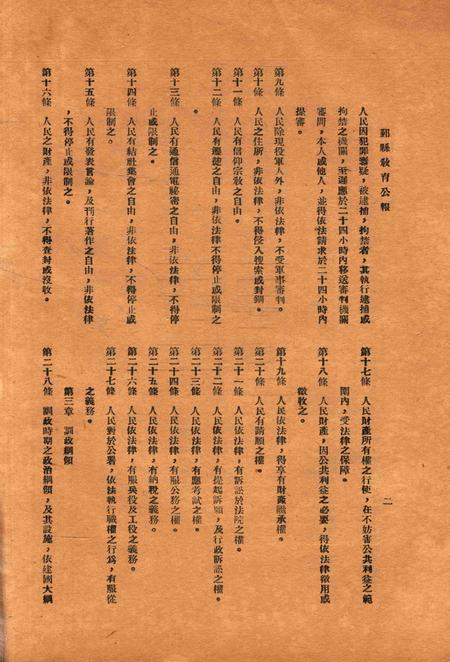 鄞縣敎育公報
二
人民因犯罪嫌疑，被逮捕，拘禁者，其執行逮捕或
拘禁之機關，至遲應於二十四小時內移送審判機關
審問，本人或他人，並得依法請求於二十四小時內
提審。
第九條　人民除現役軍人外，非依法律，不受軍事審判。
第十條　人民之住所，非依法律，不得侵入搜索或封錮。
第十一條　人民有信仰宗敎之自由。
第十二條　人民有遷徙之自由，非依法律不得停止或限制之
。
第十三條　人民有通信通電秘密之自由，非依法律，不得停
止或限制之。
第十四條　人民有結社集會之自由，非依法律，不得停止或
限制之。
第十五條　人民有發表言論，及刊行著作之自由，非依法律
，不得停止或限制之。
第十六條　人民之財產，非依法律，不得查封或沒收。
第十七條　人民財產所有權之行使，在不妨害公共利益之範
圍內，受法律之保障。
第十八條　人民財產，因公共利益之必要，得依法律徵用或
徵收之。
第十九條　人民依法律，得享有財產繼承權。
第二十條　人民有請願之權。
第二十一條　人民依法律，有訴訟於法院之權。
第二十二條　人民依法律，有提起訴願，及行政訴訟之權。
第二十三條　人民依法律，有應考試之權。
第二十四條　人民依法律，有服公務之權。
第二十五條　人民依法律，有納稅之義務。
第二十六條　人民依法律，有服兵役及工役之義務。
第二十七條　人民對於公署，依法執行職權之行爲，有服從
之義務。
第三章　訓政綱領
第二十八條　訓政時期之政治綱領，及其設施，依建國大綱